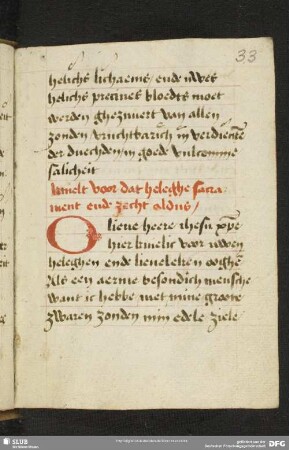 33
helichs lichaems / ende uwes
helichs precious bloedts moet
werden ghezuvert van allen
zonden vruchtbarich in verdiencten
der duechden / in goede vulcomme
salicheit
knielt voor dat heleghe sacra-
ment ende zecht aldus /
O lieve heere ihesu xpe
hier knielic voor uwen
heleghen ende lieveleken ooghen
Als een aerme besondich mensche
want ic hebbe met mine groote
zwaren zonden min edele ziele
SLUB
DFG